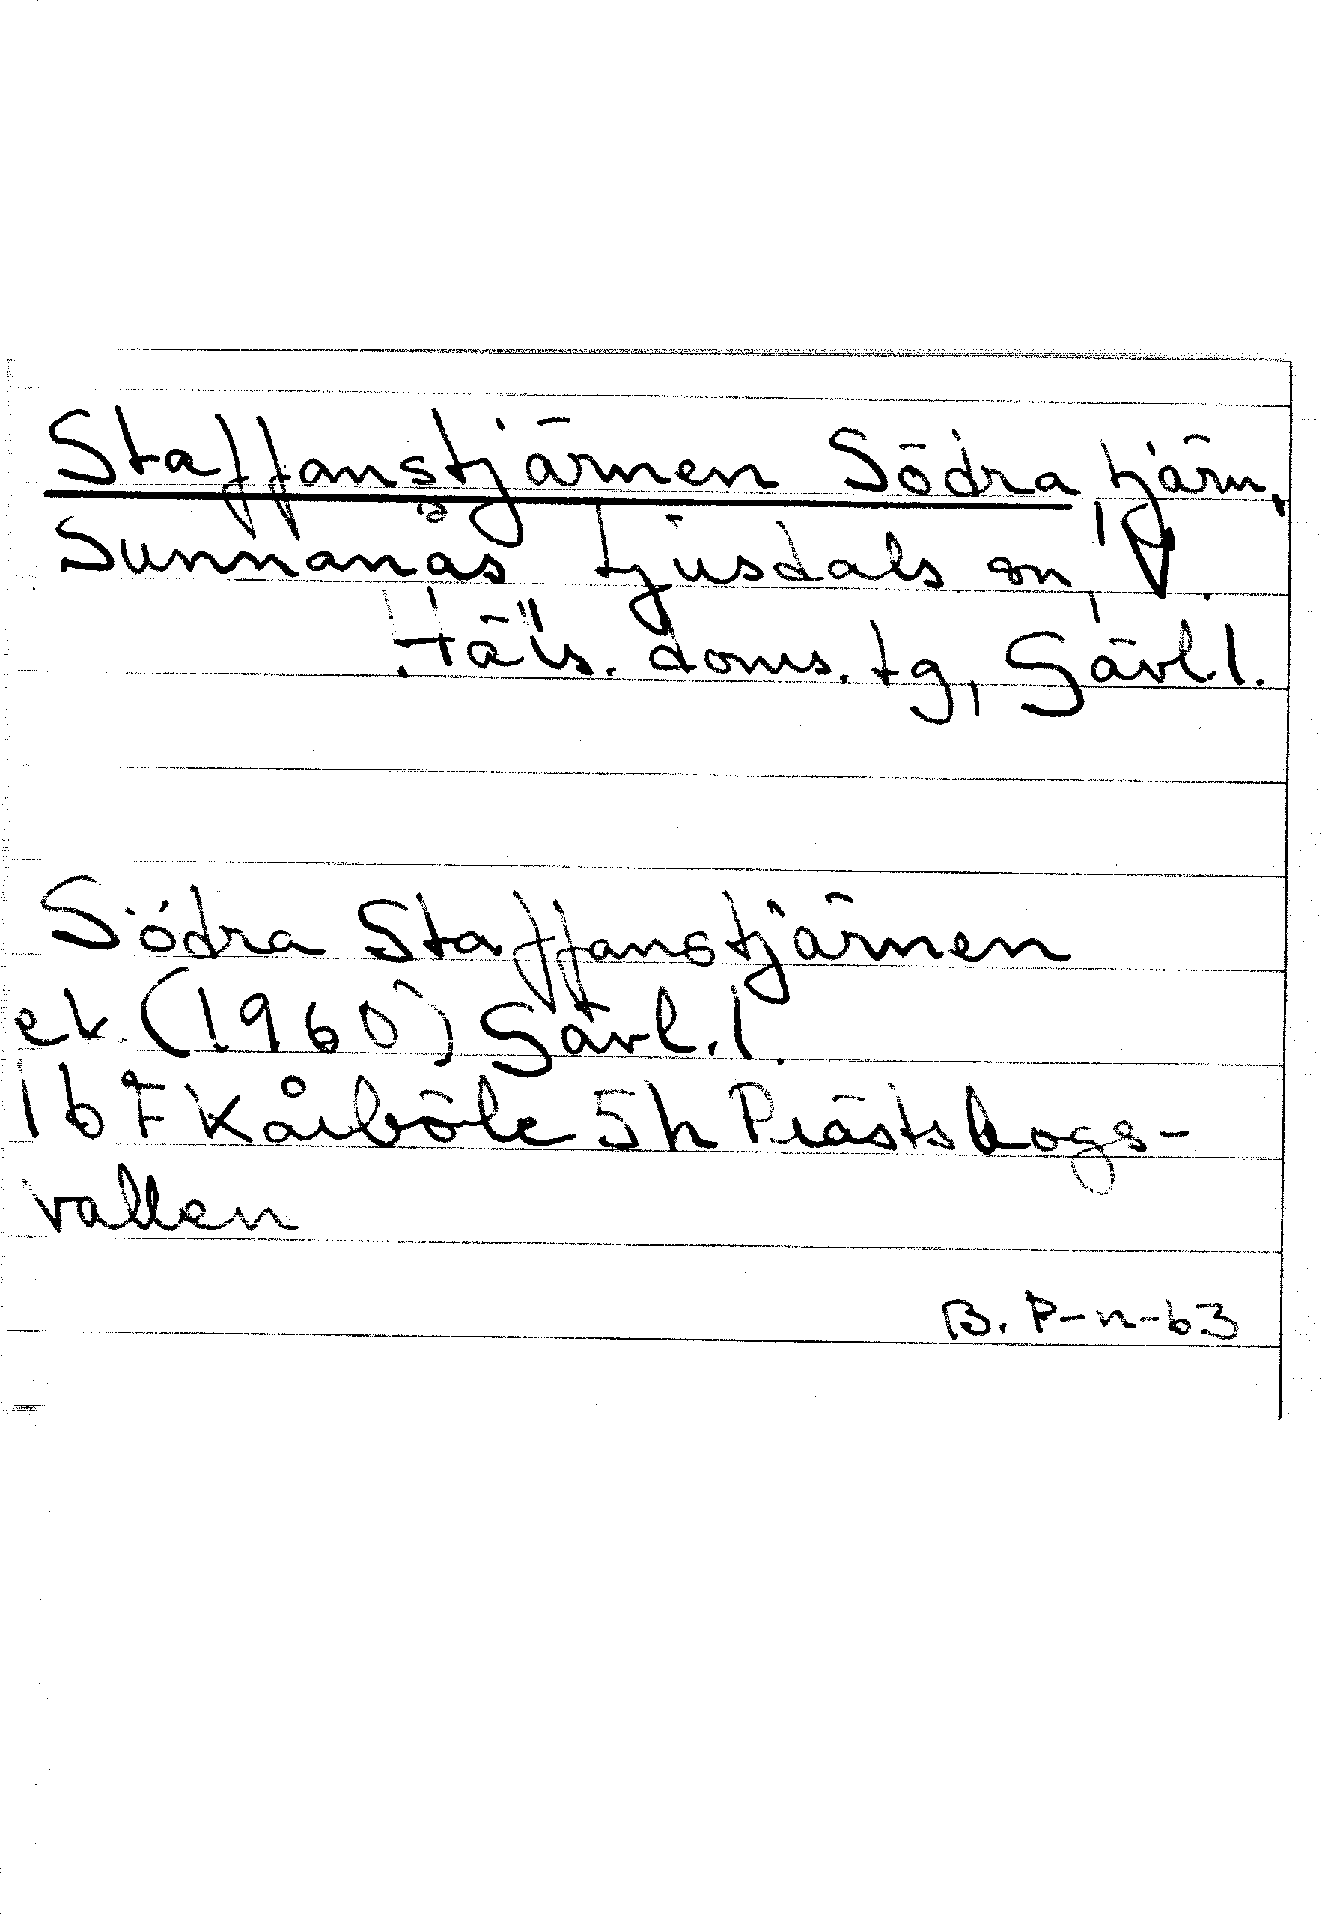 Staffanstjärnen Södra, tjärn,
Sunnanås Ljusdals sn, V.
Häls. doms. tg, Gävl.l.
Södra Staffanstjärnen
ek. (1960) Gävl.l.
16 F Kårböle 5h Prästskogs-
vallen
B. P-n-63